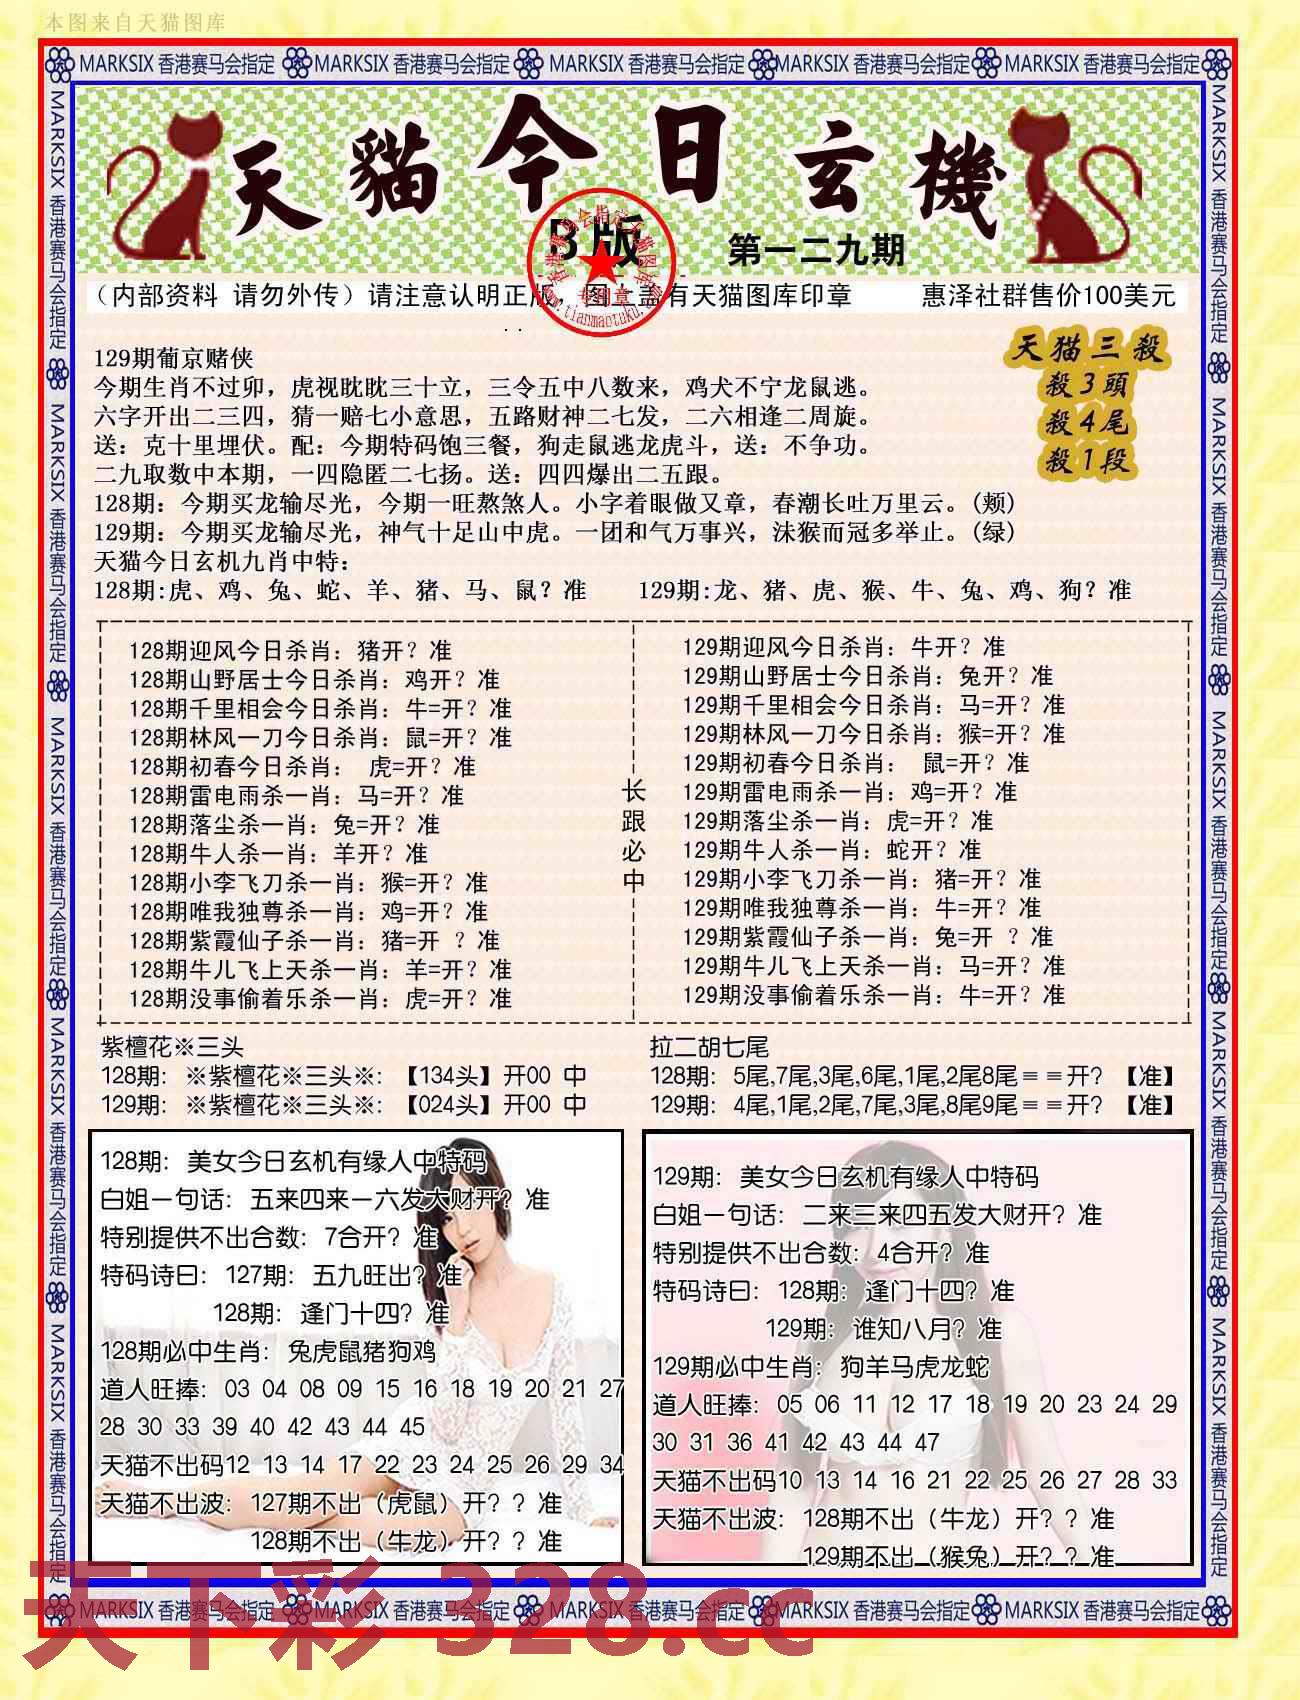 本图来自天猫图库
MARKSIX 香港赛马会指定 MARKSIX 香港赛马会指定 MARKSIX 香港赛马会指定 MARKSIX 香港赛马会指定 MARKSIX 香港赛马会指定
天貓今日玄機
B版
第一二九期
香港赛马会指定天猫图库
专用章
www.tianmaotuku.com
（内部资料 请勿外传）请注意认明正版，图上盖有天猫图库印章 惠泽社群售价100美元
天猫三殺
殺3頭
殺4尾
殺1段
129期葡京赌侠
今期生肖不过卯，虎视眈眈三十立，三令五中八数来，鸡犬不宁龙鼠逃。
六字开出二三四，猜一赔七小意思，五路财神二七发，二六相逢二周旋。
送：克十里埋伏。配：今期特码饱三餐，狗走鼠逃龙虎斗，送：不争功。
二九取数中本期，一四隐匿二七扬。送：四四爆出二五跟。
128期：今期买龙输尽光，今期一旺熬煞人。小字着眼做又章，春潮长吐万里云。(颊)
129期：今期买龙输尽光，神气十足山中虎。一团和气万事兴，沬猴而冠多举止。(绿)
天猫今日玄机九肖中特：
128期:虎、鸡、兔、蛇、羊、猪、马、鼠？准 129期:龙、猪、虎、猴、牛、兔、鸡、狗？准
128期迎风今日杀肖：猪开？准
128期山野居士今日杀肖：鸡开？准
128期千里相会今日杀肖：牛=开？准
128期林风一刀今日杀肖：鼠=开？准
128期初春今日杀肖： 虎=开？准
128期雷电雨杀一肖：马=开？准
128期落尘杀一肖：兔=开？准
128期牛人杀一肖：羊开？准
128期小李飞刀杀一肖：猴=开？准
128期唯我独尊杀一肖：鸡=开？准
128期紫霞仙子杀一肖：猪=开 ？准
128期牛儿飞上天杀一肖：羊=开？准
128期没事偷着乐杀一肖：虎=开？准
长跟必中
129期迎风今日杀肖：牛开？准
129期山野居士今日杀肖：兔开？准
129期千里相会今日杀肖：马=开？准
129期林风一刀今日杀肖：猴=开？准
129期初春今日杀肖： 鼠=开？准
129期雷电雨杀一肖：鸡=开？准
129期落尘杀一肖：虎=开？准
129期牛人杀一肖：蛇开？准
129期小李飞刀杀一肖：猪=开？准
129期唯我独尊杀一肖：牛=开？准
129期紫霞仙子杀一肖：兔=开 ？准
129期牛儿飞上天杀一肖：马=开？准
129期没事偷着乐杀一肖：牛=开？准
紫檀花※三头
128期： ※紫檀花※三头※: 【134头】开00 中
129期： ※紫檀花※三头※: 【024头】开00 中
拉二胡七尾
128期： 5尾,7尾,3尾,6尾,1尾,2尾8尾＝＝开？【准】
129期： 4尾,1尾,2尾,7尾,3尾,8尾9尾＝＝开？【准】
128期：美女今日玄机有缘人中特码
白姐一句话：五来四来一六发大财开？准
特别提供不出合数：7合开？准
特码诗曰：127期：五九旺出？准
128期：逢门十四？准
128期必中生肖：兔虎鼠猪狗鸡
道人旺捧：03 04 08 09 15 16 18 19 20 21 27
28 30 33 39 40 42 43 44 45
天猫不出码12 13 14 17 22 23 24 25 26 29 34
天猫不出波：127期不出（虎鼠）开？？准
128期不出（牛龙）开？？准
129期：美女今日玄机有缘人中特码
白姐一句话：二来三来四五发大财开？准
特别提供不出合数：4合开？准
特码诗曰：128期：逢门十四？准
129期：谁知八月？准
129期必中生肖：狗羊马虎龙蛇
道人旺捧：05 06 11 12 17 18 19 20 23 24 29
30 31 36 41 42 43 44 47
天猫不出码10 13 14 16 21 22 25 26 27 28 33
天猫不出波：128期不出（牛龙）开？？准
129期不出（猴兔）开？？准
MARKSIX 香港赛马会指定 MARKSIX 香港赛马会指定 MARKSIX 香港赛马会指定 MARKSIX 香港赛马会指定 MARKSIX 香港赛马会指定
MARKSIX 香港赛马会指定 MARKSIX 香港赛马会指定 MARKSIX 香港赛马会指定 MARKSIX 香港赛马会指定 MARKSIX 香港赛马会指定
MARKSIX 香港赛马会指定 MARKSIX 香港赛马会指定 MARKSIX 香港赛马会指定 MARKSIX 香港赛马会指定 MARKSIX 香港赛马会指定
天下彩 328.cc